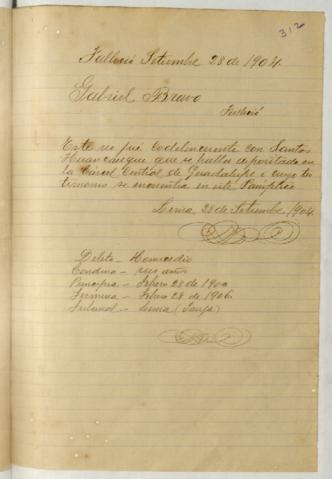 312
Falleció Setiembre 28 de 1904
Gabriel Bravo
Falleció
Este reo fué codelincuente con Santos
Huancauque que se halla depositado en
la Cárcel Central de Guadalupe i cuyo tes
timonio se encuentra en este Panóptico
Lima 28 de Setiembre 1904
Delito - Homicidio
Condena - seis años
Principia - Febro 28 de 1900
Termina - Febro 28 de 1906
Tribunal - Lima (Jauja)